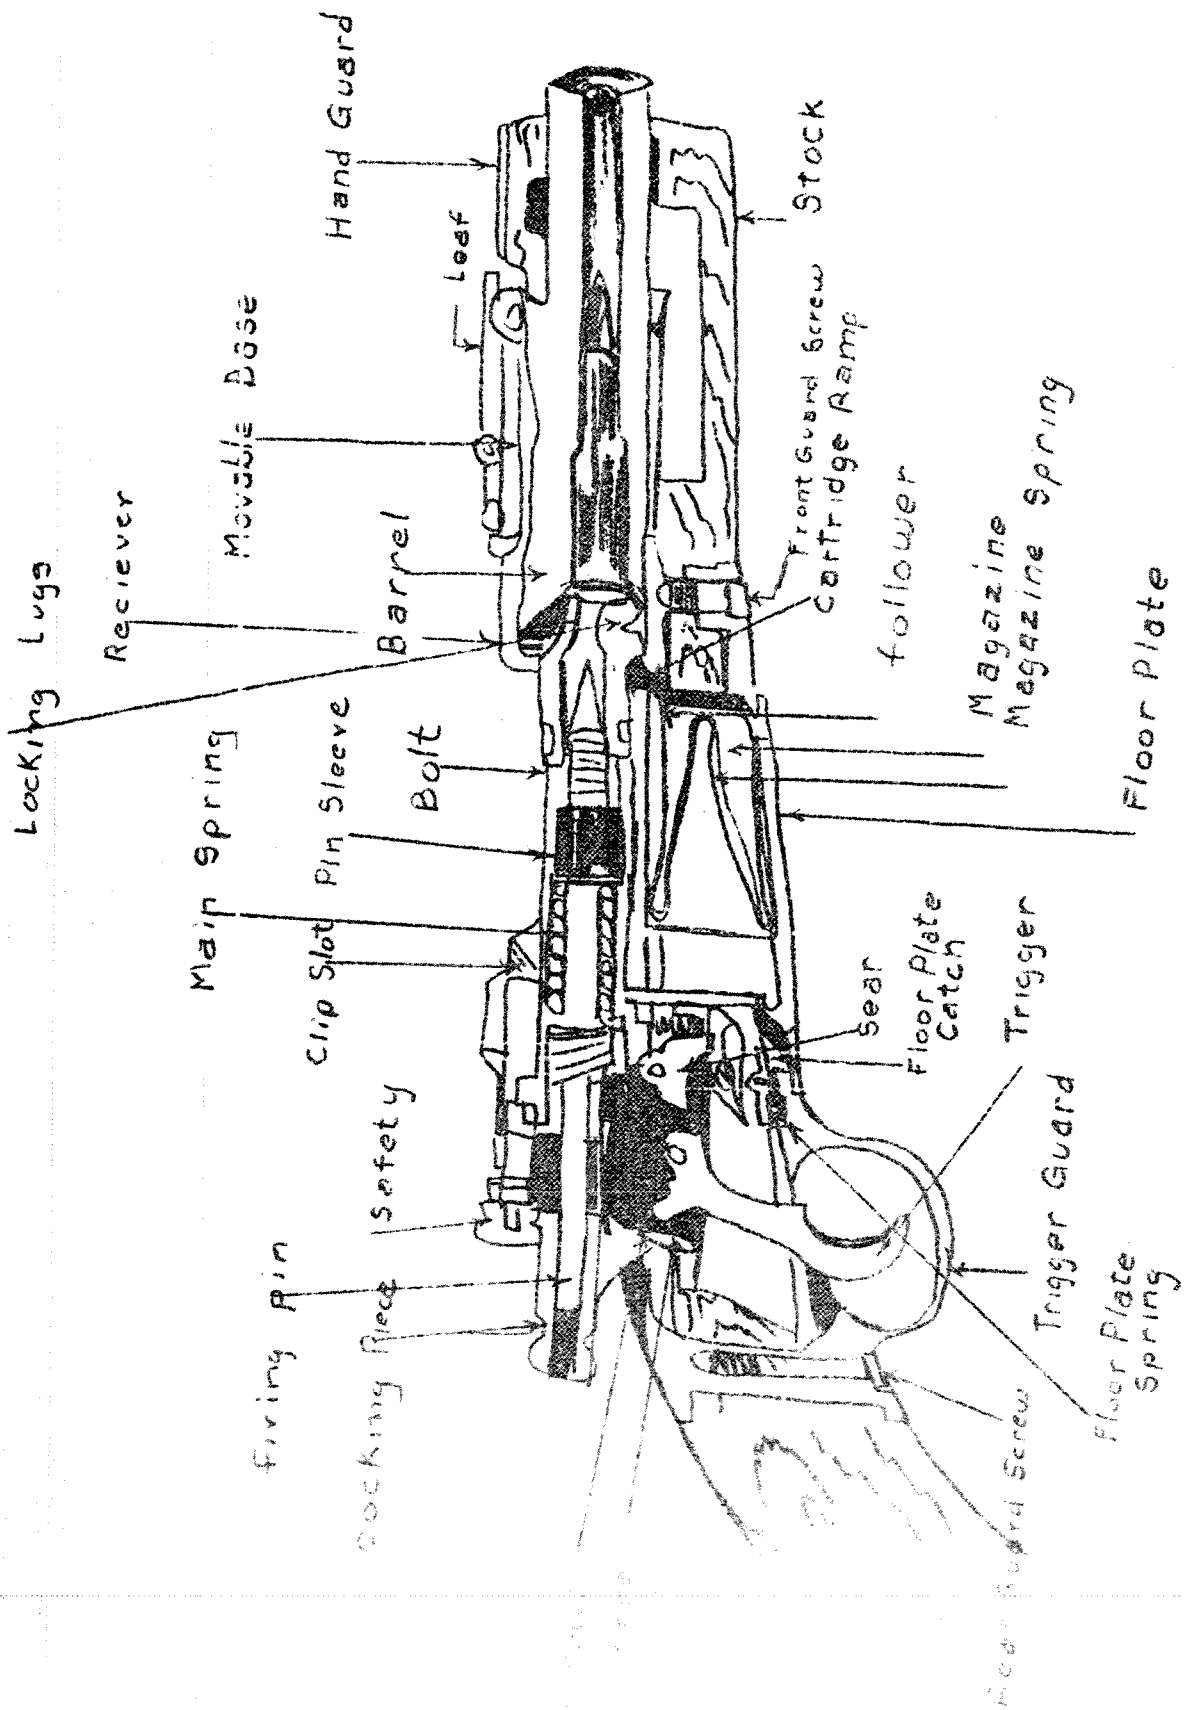 Locking Lugs
Reciever
Movable Base
Leaf
Hand Guard
Main Spring
Pin Sleeve
Bolt
Barrel
Clip Slot
Safety
Firing Pin
Cocking Piece
Stock
Front Guard Screw
Cartridge Ramp
follower
Magazine
Magazine Spring
Floor Plate
Sear
Floor Plate
Catch
Trigger
Trigger Guard
Floor Plate
Spring
Guard Screw